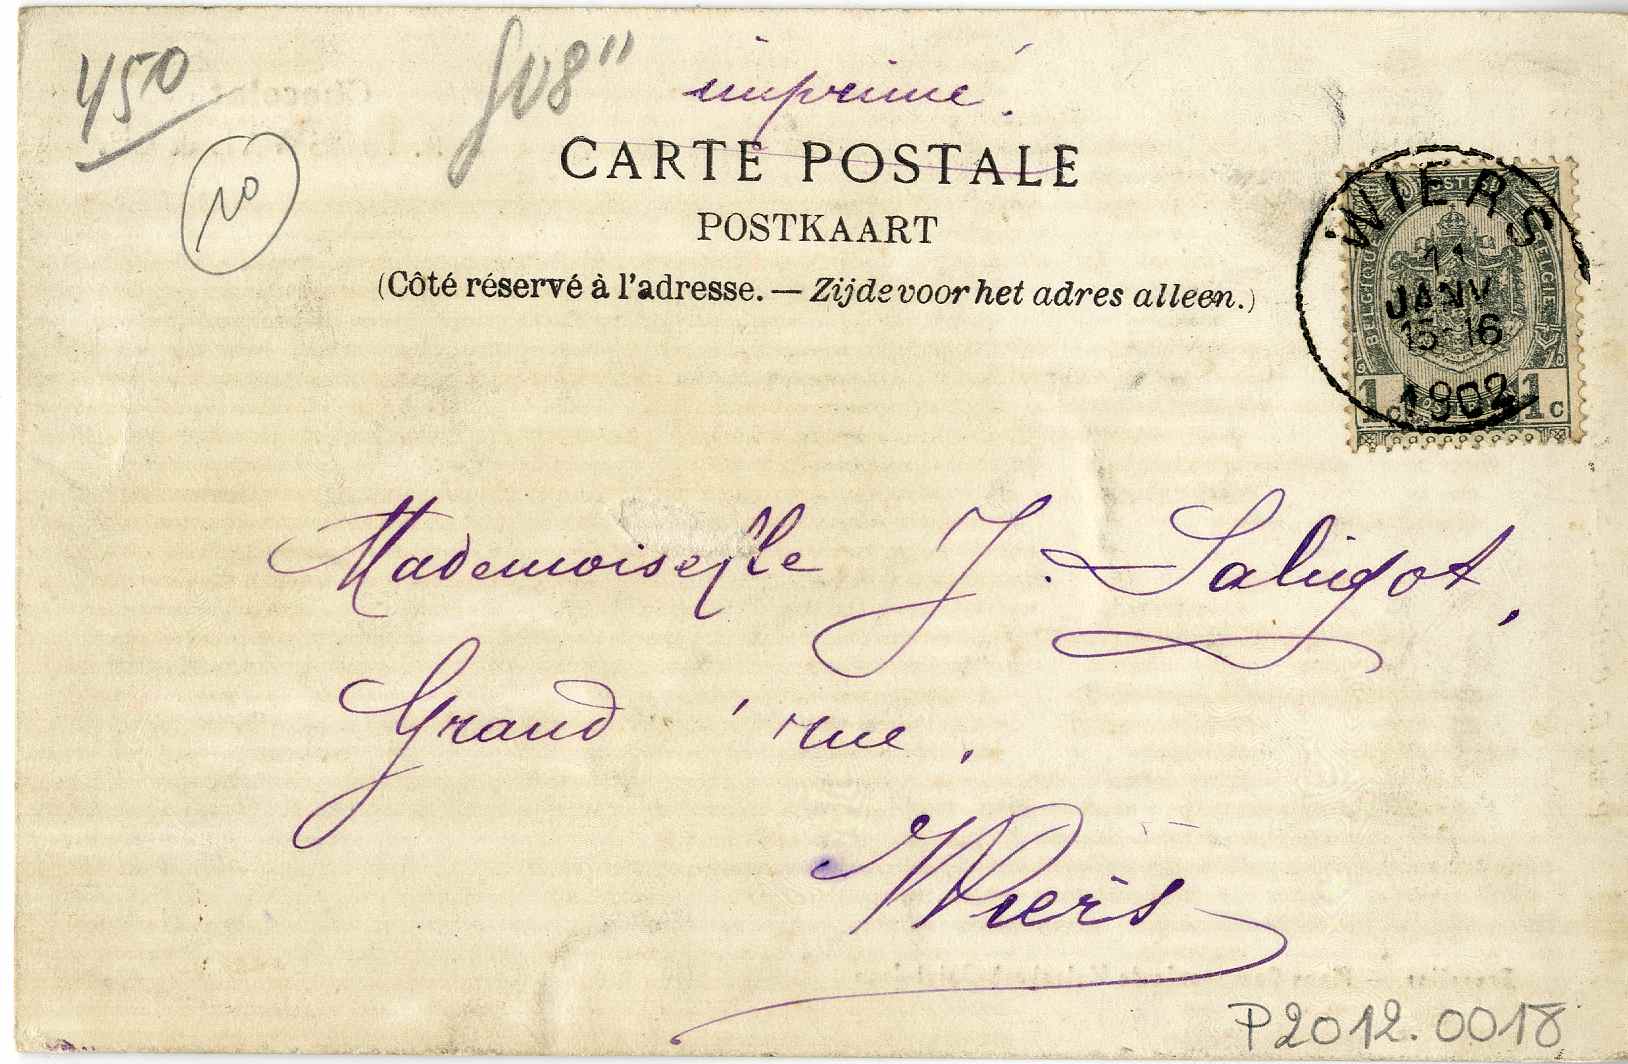 450
10
imprimé.
CARTE POSTALE
POSTKAART
(Côté réservé à l'adresse. — Zijde voor het adres alleen.)
WIERS
11
JANV
15-16
1902
POSTES
BELGIQUE
BELGIE
1c 1c
Mademoiselle J. Saligot,
Grand'rue.
Wiers
P2012.0018